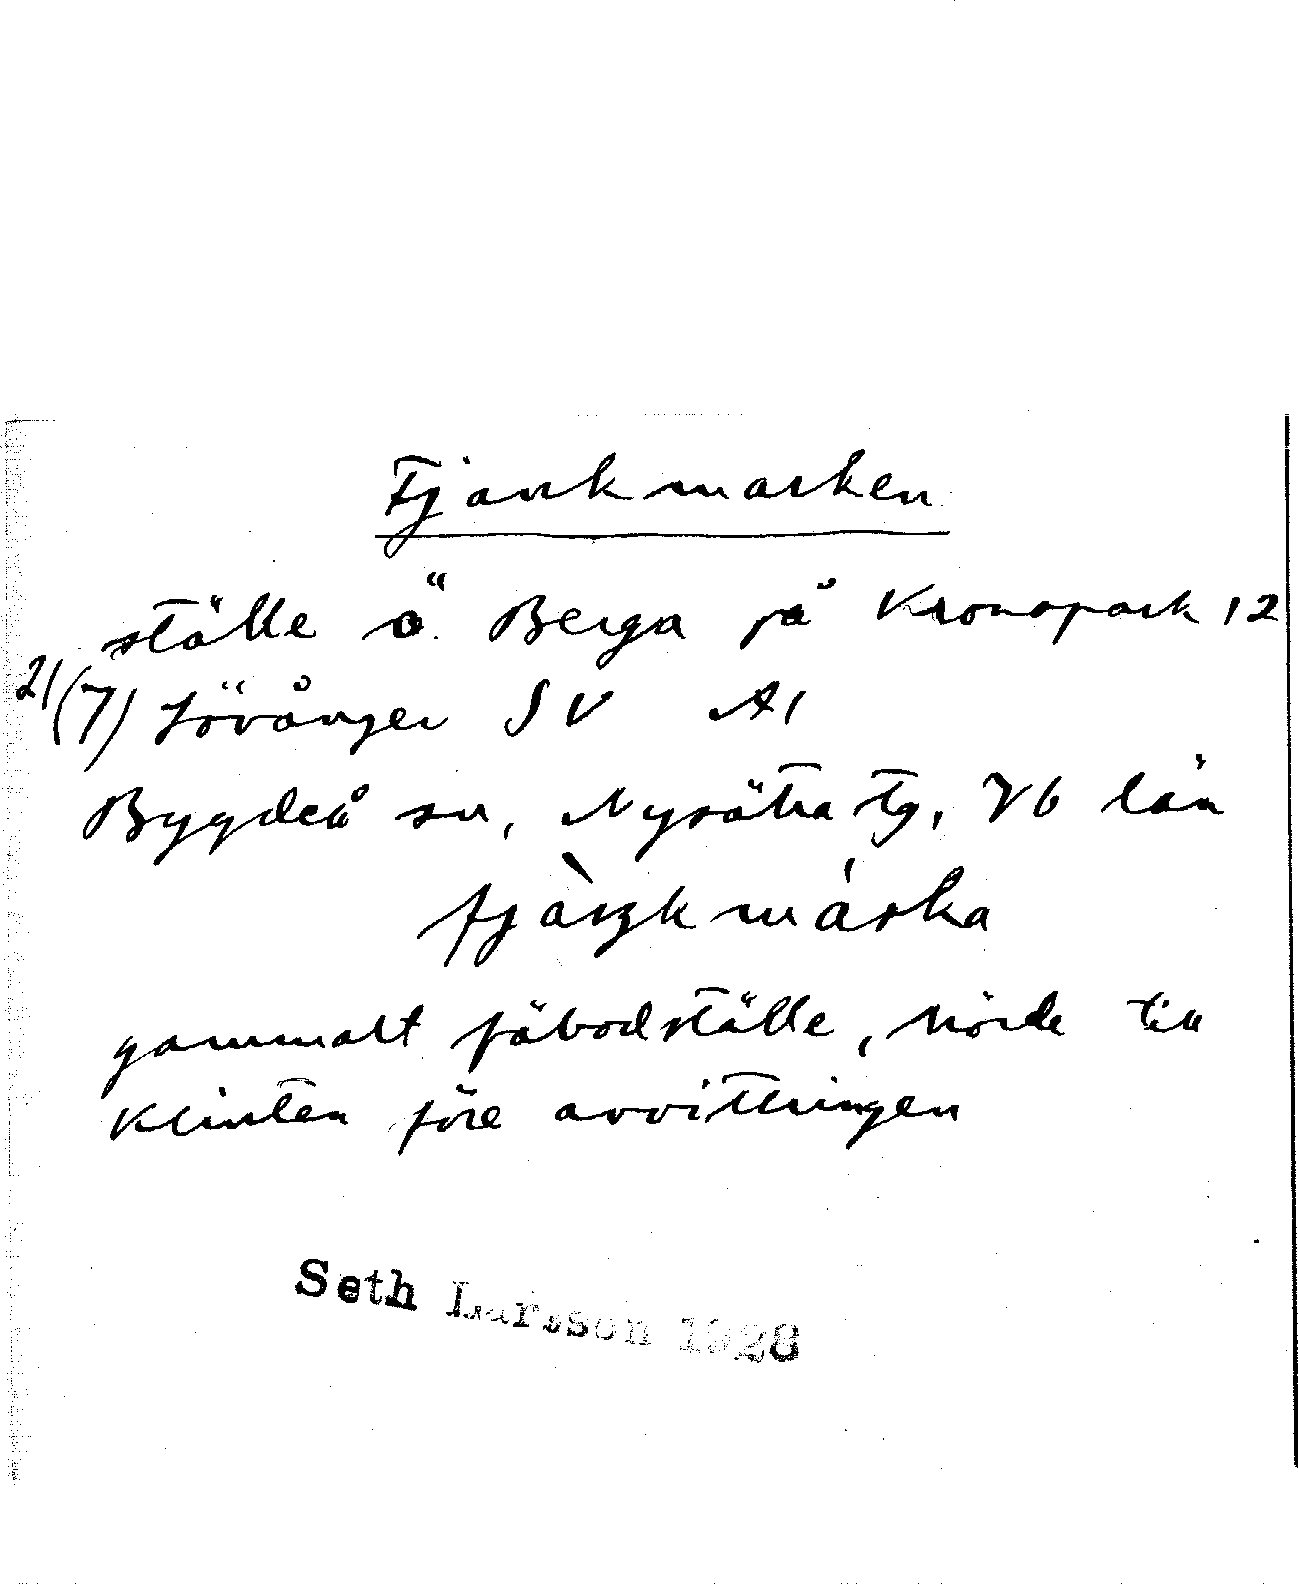 Fjankmarken
ställe ö. Berga på Kronopark 12
21(7) Lövånger SV A1
Bygdeå sn, Nysätra tg, Vb län
fjàŋkmárka
gammalt fäbodställe, hörde till
Klinten före avvittringen
Seth Larsson 1928